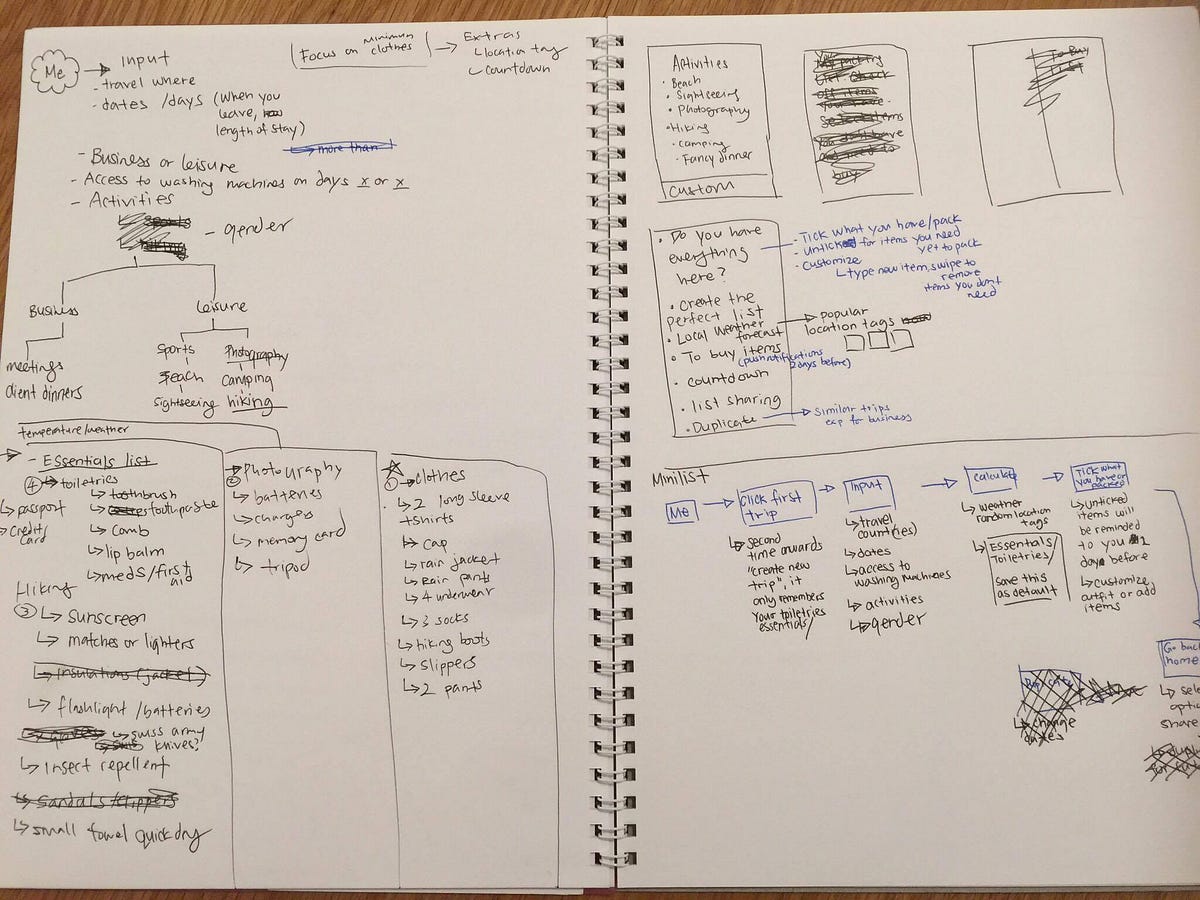 Me
Input
- travel where
- dates /days (when you
leave,
length of stay)
more than
- Business or leisure
- Access to washing machines on days x or x
- Activities
- gender
Focus on minimum clothes
Extras
location tag
countdown
Business
Leisure
meetings
client dinners
Sports
Beach
Sightseeing
Photography
Camping
hiking
temperature/weather
- Essentials list
④ toiletries
passport
credit card
toothbrush
toothpaste
comb
lip balm
meds/first aid
Hiking
③ Sunscreen
matches or lighters
insulations (jacket)
flashlight /batteries
swiss army
knives?
insect repellent
Sandals/slippers
small towel quick dry
② Photography
batteries
chargers
memory card
tripod
① clothes
2 long sleeve
tshirts
cap
rain jacket
Rain pants
4 underwear
3 socks
hiking boots
slippers
2 pants
Activities
· Beach
· Sightseeing
· Photography
· Hiking
· camping
· Fancy dinner
custom
packing
list. Check
off items
you have.
items
you don't have
and need to
buy
To Buy
List
· Do you have
everything
here?
· Create the
perfect list
· Local weather
forecast
· To buy items
(push notifications
2 days before)
· countdown
· list sharing
· Duplicate
- Tick what you have/pack
- Untick for items you need
yet to pack
- Customize
type new item, swipe to
remove
items you don't
need
Popular
location tags
Similar trips
esp for business
Minilist
Me
Click first
trip
second
time onwards
"create new
trip", it
only remembers
your toiletries
essentials/
Input
travel
countr(ies)
dates
access to
washing machines
activities
gender
calculate
weather
random location
tags
Essentials/
Toiletries/
save this
as default
Tick what
you have or
packed
unticked
items will
be reminded
to you 1
day before
customize,
outfit or add
items
change
dates
Go back
home